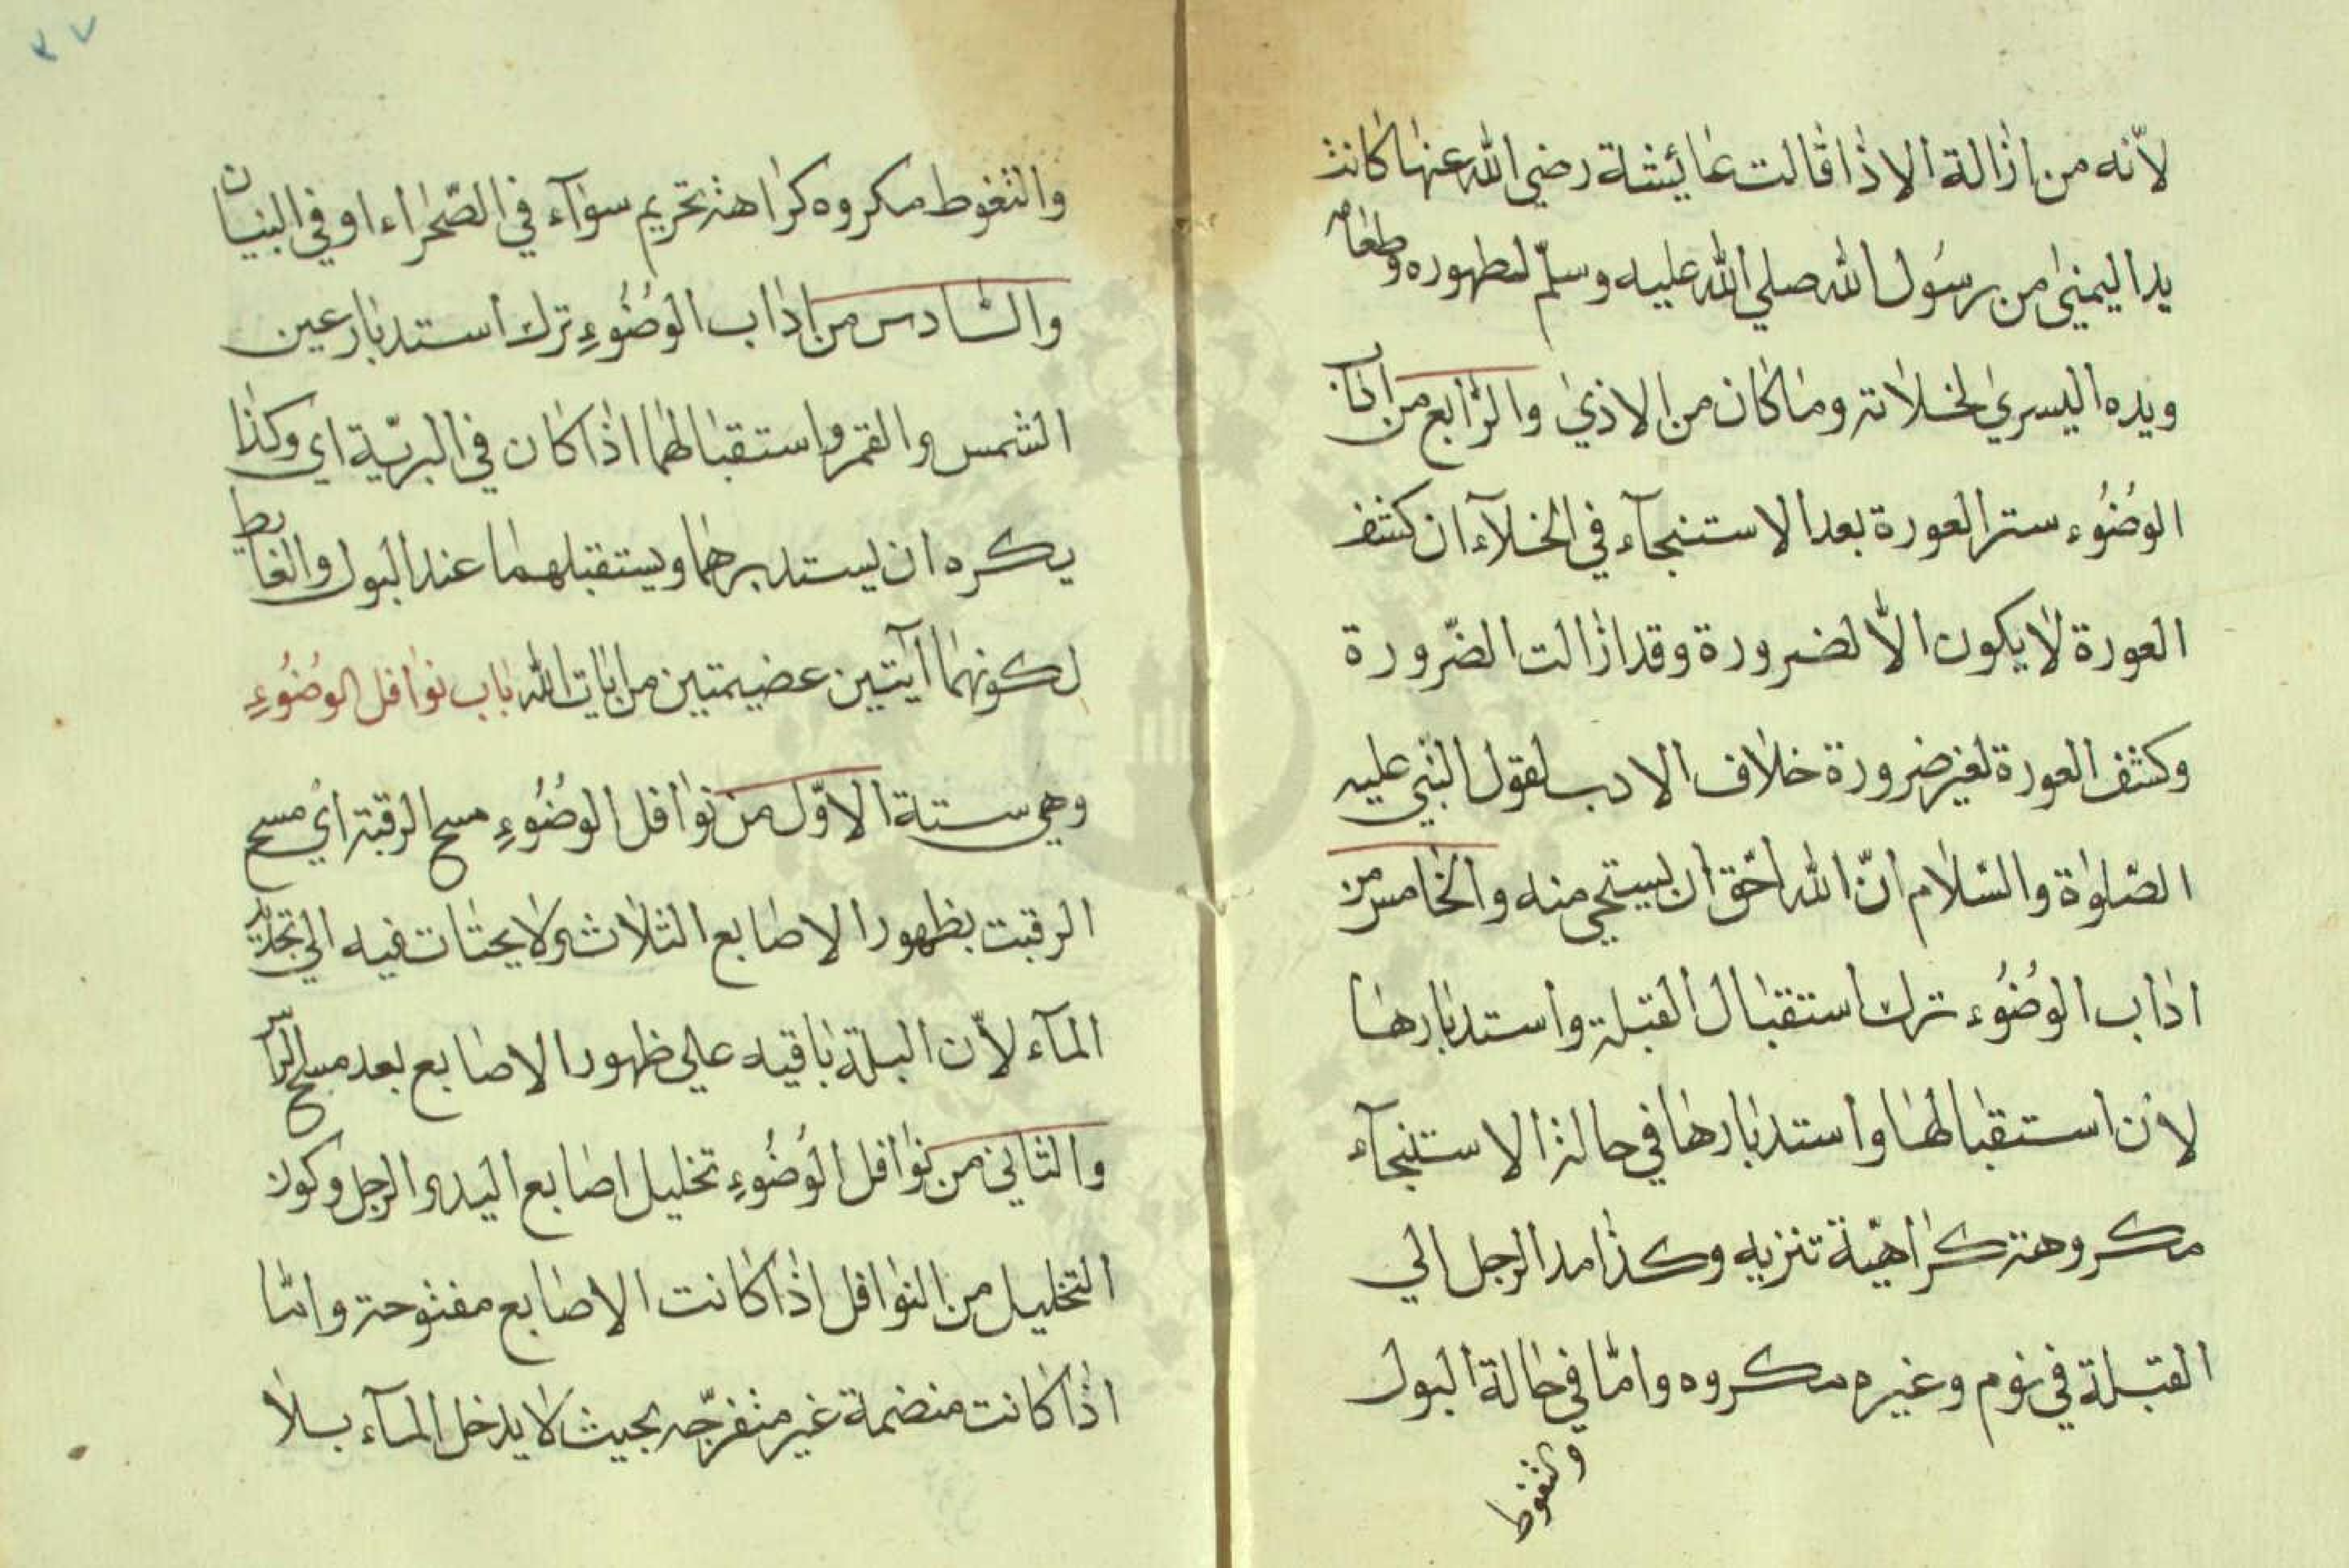 لأنّه من ازالة الاذا قالت عايئشة رضي الله عنها كانت
يدا ليمني من رسول الله صلي الله عليه وسلّم لطهوره وطعامه
ويده اليسري لخلاته وما كان من الاذي والرّابع من اداب
الوضُوُء ستر العورة بعد الاستنجآء في الخلآء ان كشف
العورة لا يكون الّا لضرورة وقد ازالت الضّرورة
وكشف العورة لغير ضرورة خلاف الادب لقول النّبي عليه
الصّلوٰة والسّلام انّ الله احّق ان يستحي منه والخامس من
اداب الوُضُوُء ترك استقبال القبلة واستدبارها
لأن استقبالها واستدبارها في حالة الاستنجآء
مكروهة كراهيّة تنزيه وكذا مد الرجل الي
القبلة في نوم وغيره مكروه وامّا في حالة البول
والتغوط
٢٧
والتغوط مكروه كراهة تحريم سوآء في الصّحراء او في البنيان
والسّادس من اداب الوُضُوُءِ ترك استدبار عين
الشمس والقمر واستقبالهما اذا كان في البريّة اي وكذا
يكره ان يستدبرهما ويستقبلهما عند البول والغايط
لكونهما آيتين عضيمتين من ايات الله باب نوافل الوُضُوُءِ
وهي ستة الاوّل من نوافل الوُضُوُءِ مسح الرقبة اي مسح
الرقبت بظهور الاصابع الثلاث ولا يحتات فيه الي تجديد
المآء لأن البلة باقيه علي ظهور الاصابع بعد مسح الرّأس
والثاني من نوافل الوُضُوُءِ تخليل اصابع اليد والرجل وكون
التخليل من النوافل اذا كانت الاصابع مفتوحة وامّا
اذا كانت منضمة غير متفرّجه بحيث لا يدخل المآء بلا